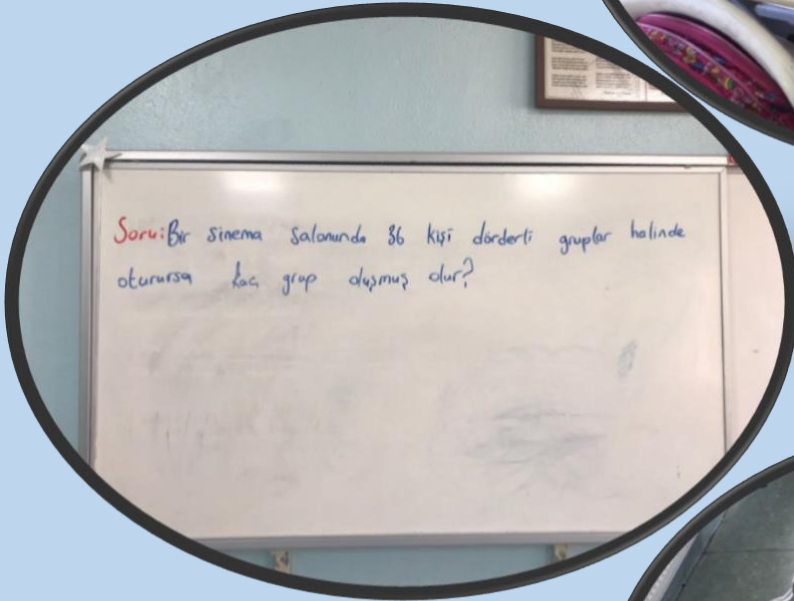 Soru: Bir sinema salonunda 36 kişi dörderli gruplar halinde
oturursa kaç grup oluşmuş olur?